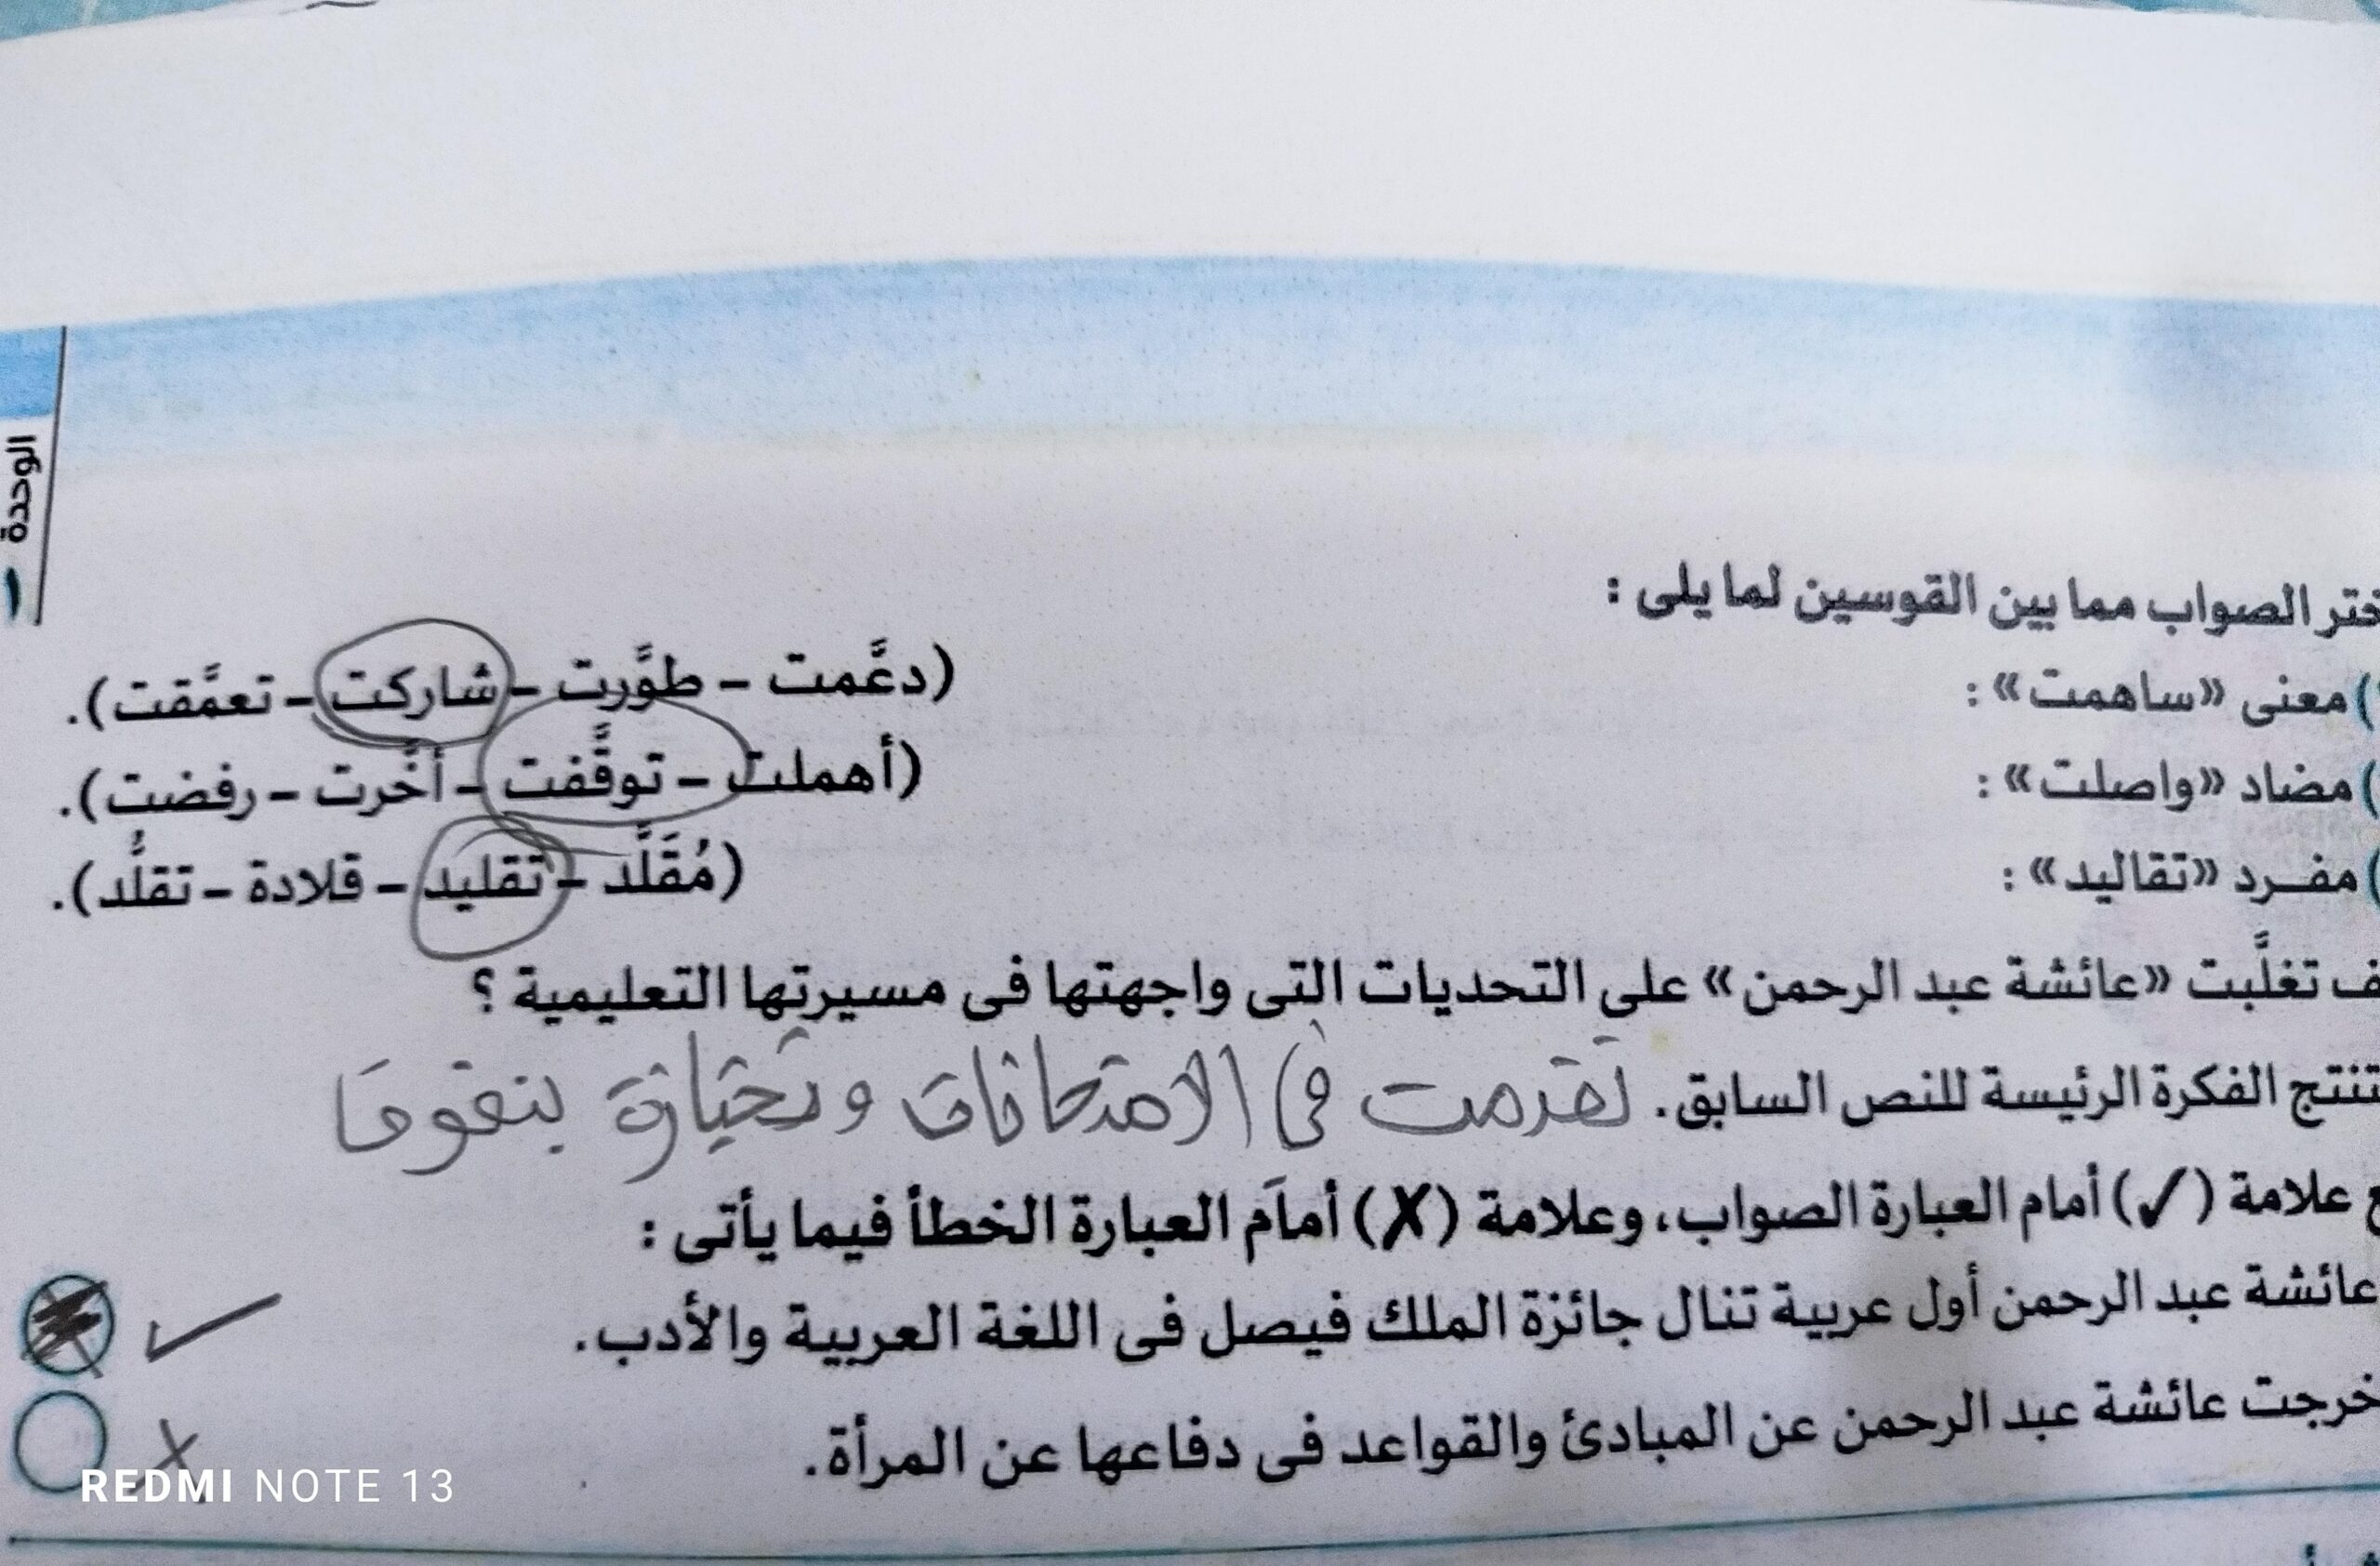 الوحدة
ختر الصواب مما بين القوسين لما يلى :
) معنى «ساهمت» : (دعَّمت – طوَّرت – شاركت – تعمَّقت).
) مضاد «واصلت» : (أهملت – توقَّفت – أخَّرت – رفضت).
) مفرد «تقاليد» : (مُقَلَّد – تقليد – قلادة – تقلُّد).
ف تغلَّبت «عائشة عبد الرحمن» على التحديات التى واجهتها فى مسيرتها التعليمية ؟
تنتج الفكرة الرئيسة للنص السابق. تقدمت فى الامتحانات بتفوق
ع علامة (✓) أمام العبارة الصواب، وعلامة (✗) أمام العبارة الخطأ فيما يأتى :
عائشة عبد الرحمن أول عربية تنال جائزة الملك فيصل فى اللغة العربية والأدب. ✓
خرجت عائشة عبد الرحمن عن المبادئ والقواعد فى دفاعها عن المرأة. ✗
REDMI NOTE 13